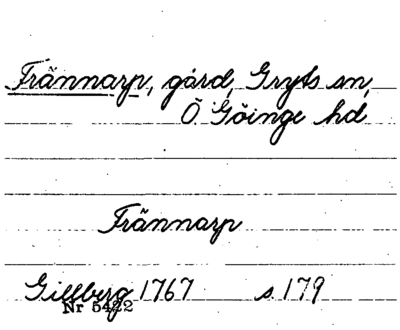 Frännarp, gård, Gryts sn,
Ö Göinge hd
Frännarp
Gillberg 1767 s 179
Nr 5422